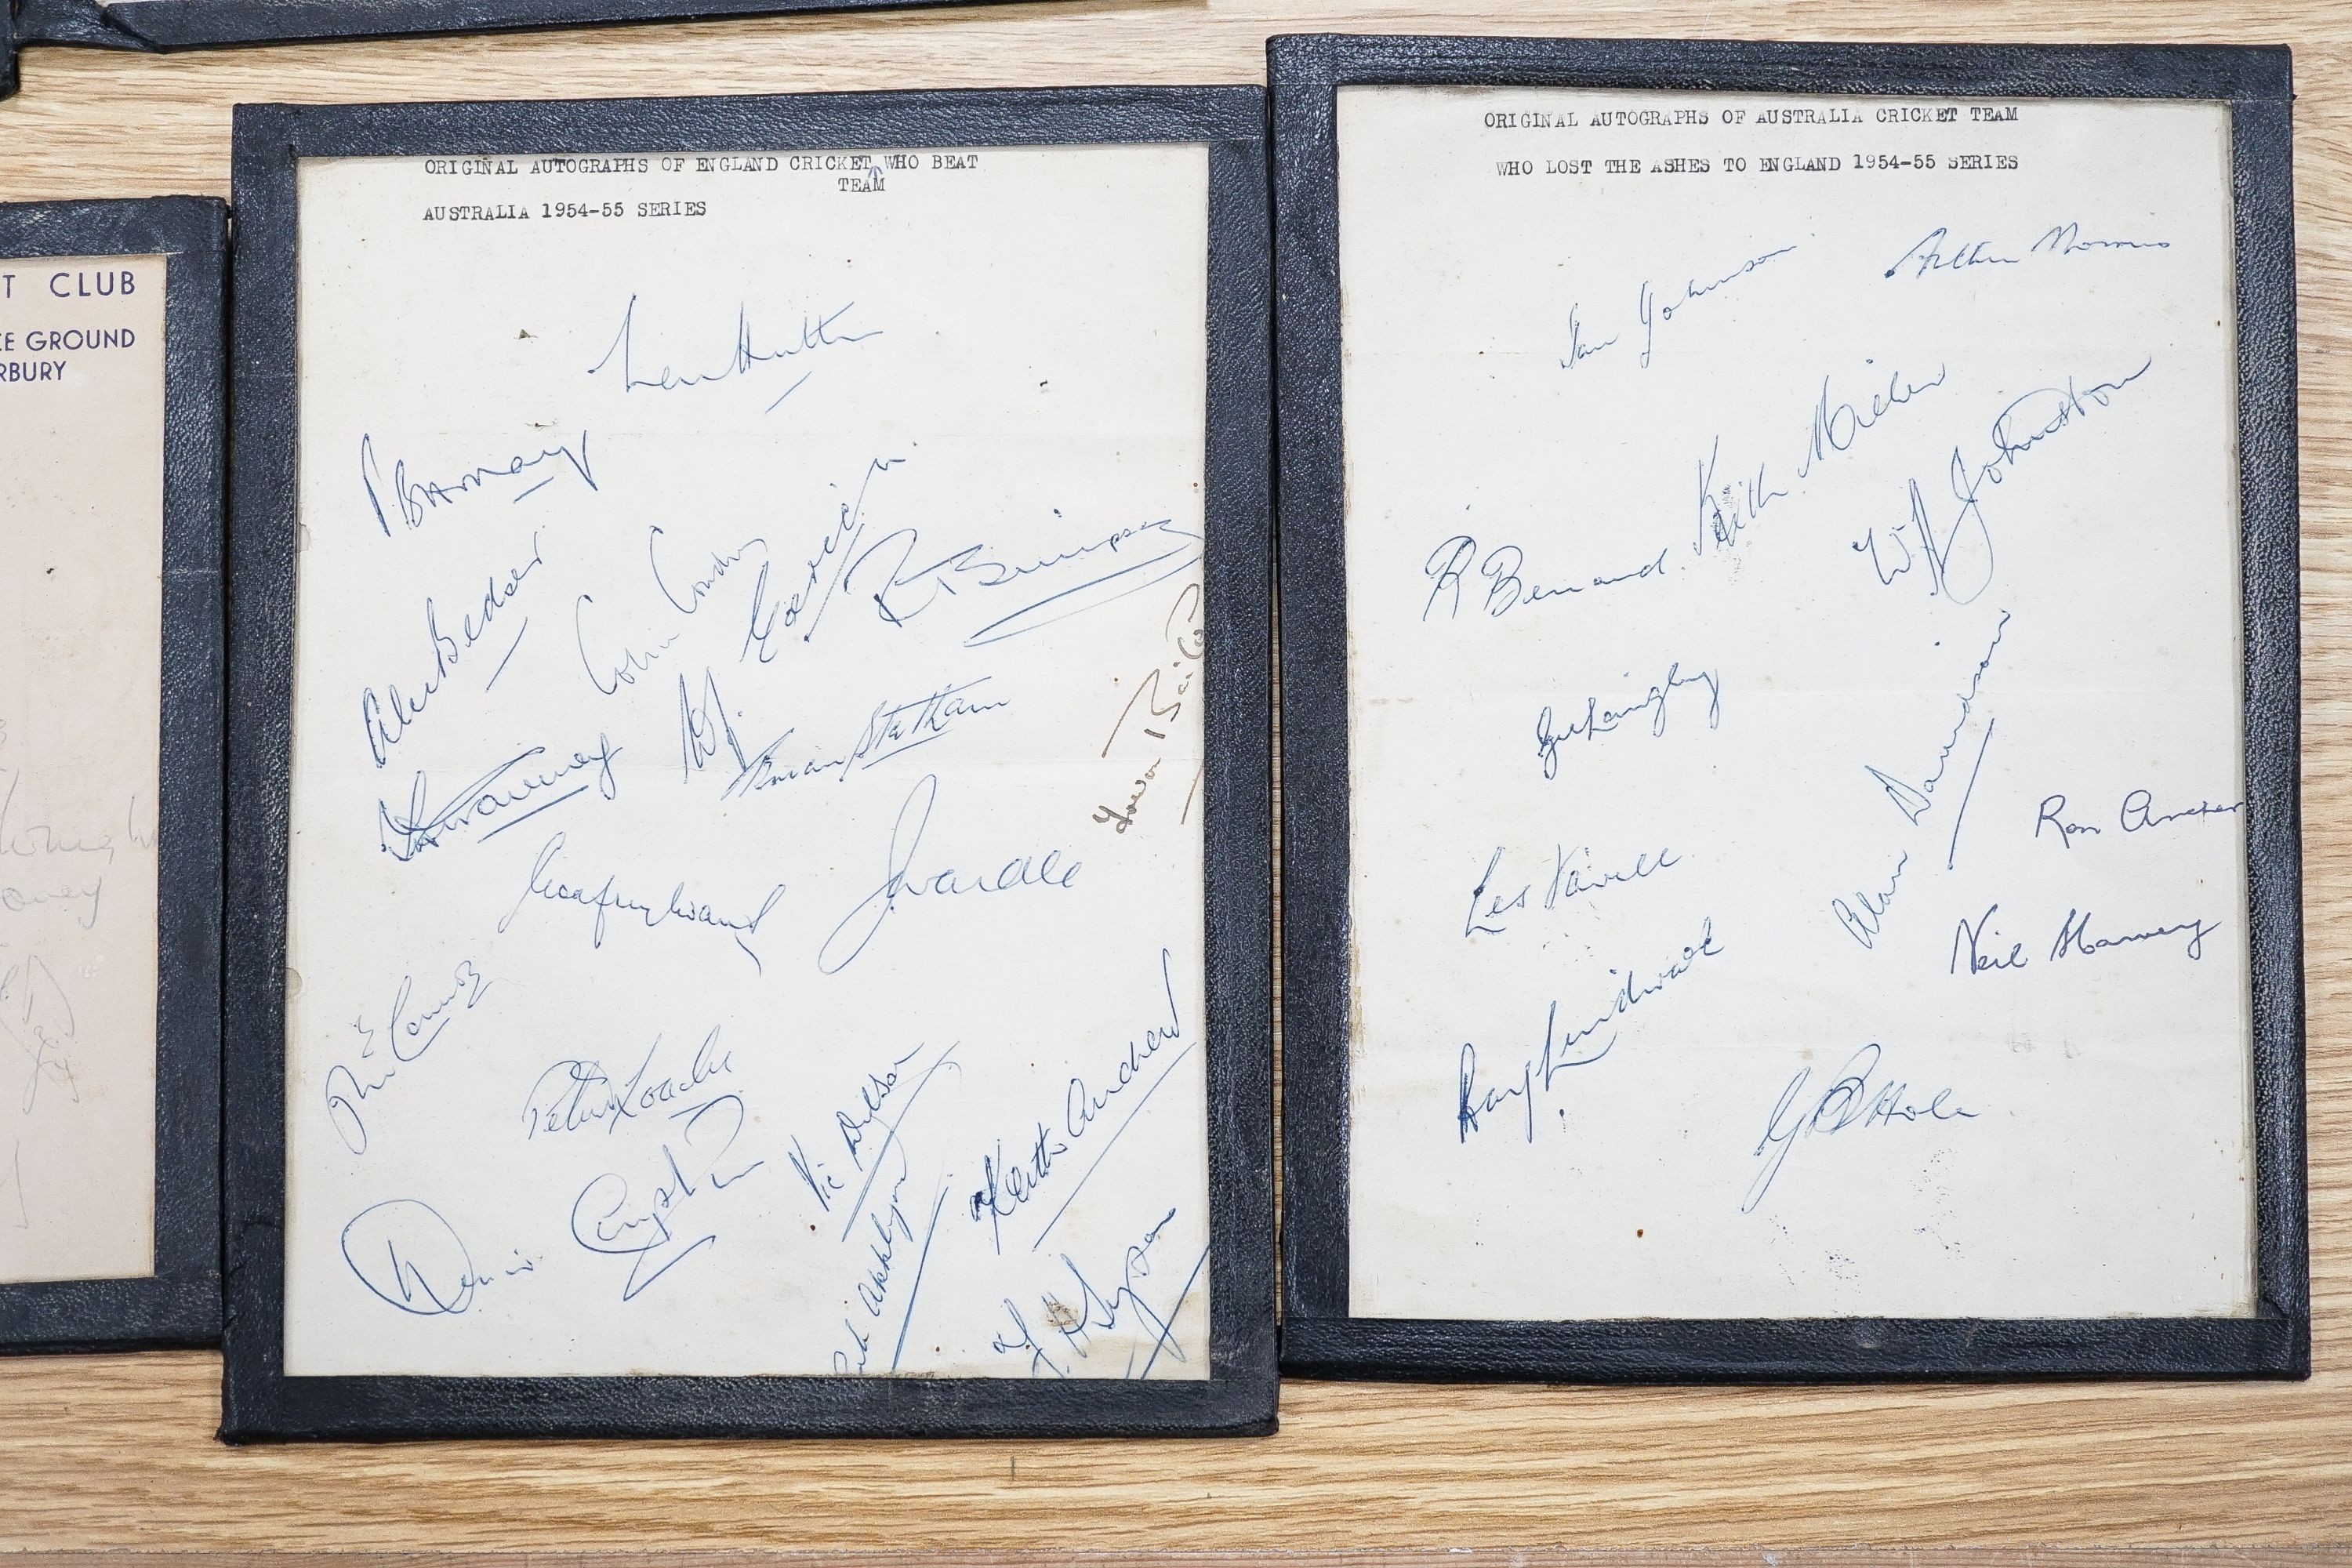 T CLUB
E GROUND
RBURY
ORIGINAL AUTOGRAPHS OF ENGLAND CRICKET WHO BEAT
TEAM
AUSTRALIA 1954-55 SERIES
Len Hutton
Alec Bedser
Colin Cowdrey
W. J. Edrich
R T Simpson
Trevor Bailey
Brian Statham
T W Graveney
J Wardle
Peter Loader
Denis Compton
Vic Wilson
Keith Andrew
Bob Appleyard
F. H. Tyson
ORIGINAL AUTOGRAPHS OF AUSTRALIA CRICKET TEAM
WHO LOST THE ASHES TO ENGLAND 1954-55 SERIES
Ian Johnson
Arthur Morris
Keith Miller
W A Johnston
R Benaud.
Gil Langley
Alan Davidson
Ron Archer
Les Favell
Neil Harvey
Ray Lindwall
G B Hole